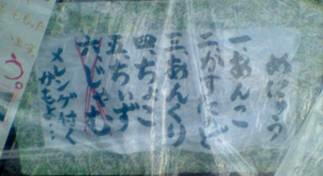 めにゅう
一、あんこ
二、かすたーど
三、あんくり
四、ちょこ
五、ちいず
六、じゃむ
メレンゲ付く
かもよ…
う。